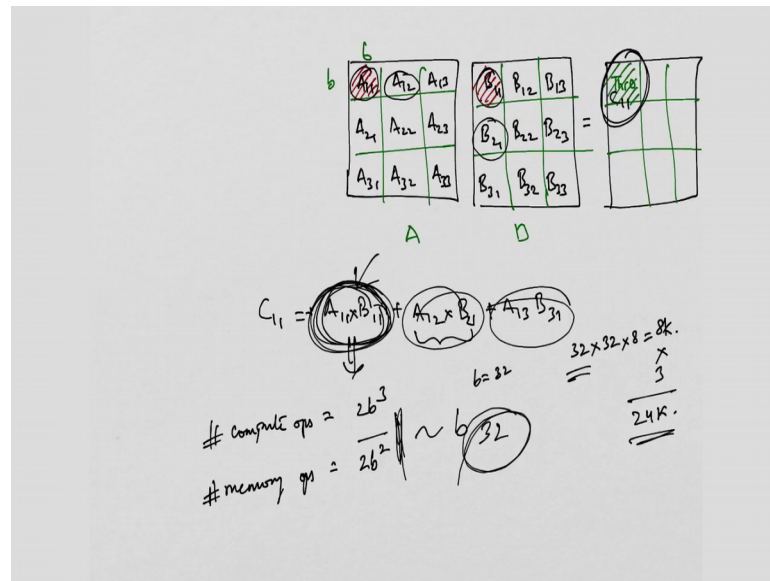 b
b
A11 A12 A13
A21 A22 A23
A31 A32 A33
B11 B12 B13
B21 B22 B23
B31 B32 B33
=
C11
A
C11 = A11 × B11 + A12 × B21 + A13 B31
b=32
32×32×8 = 8k.
×
3
24K.
# compute ops = 2b³
# memory ops = 2b²
~ b 32